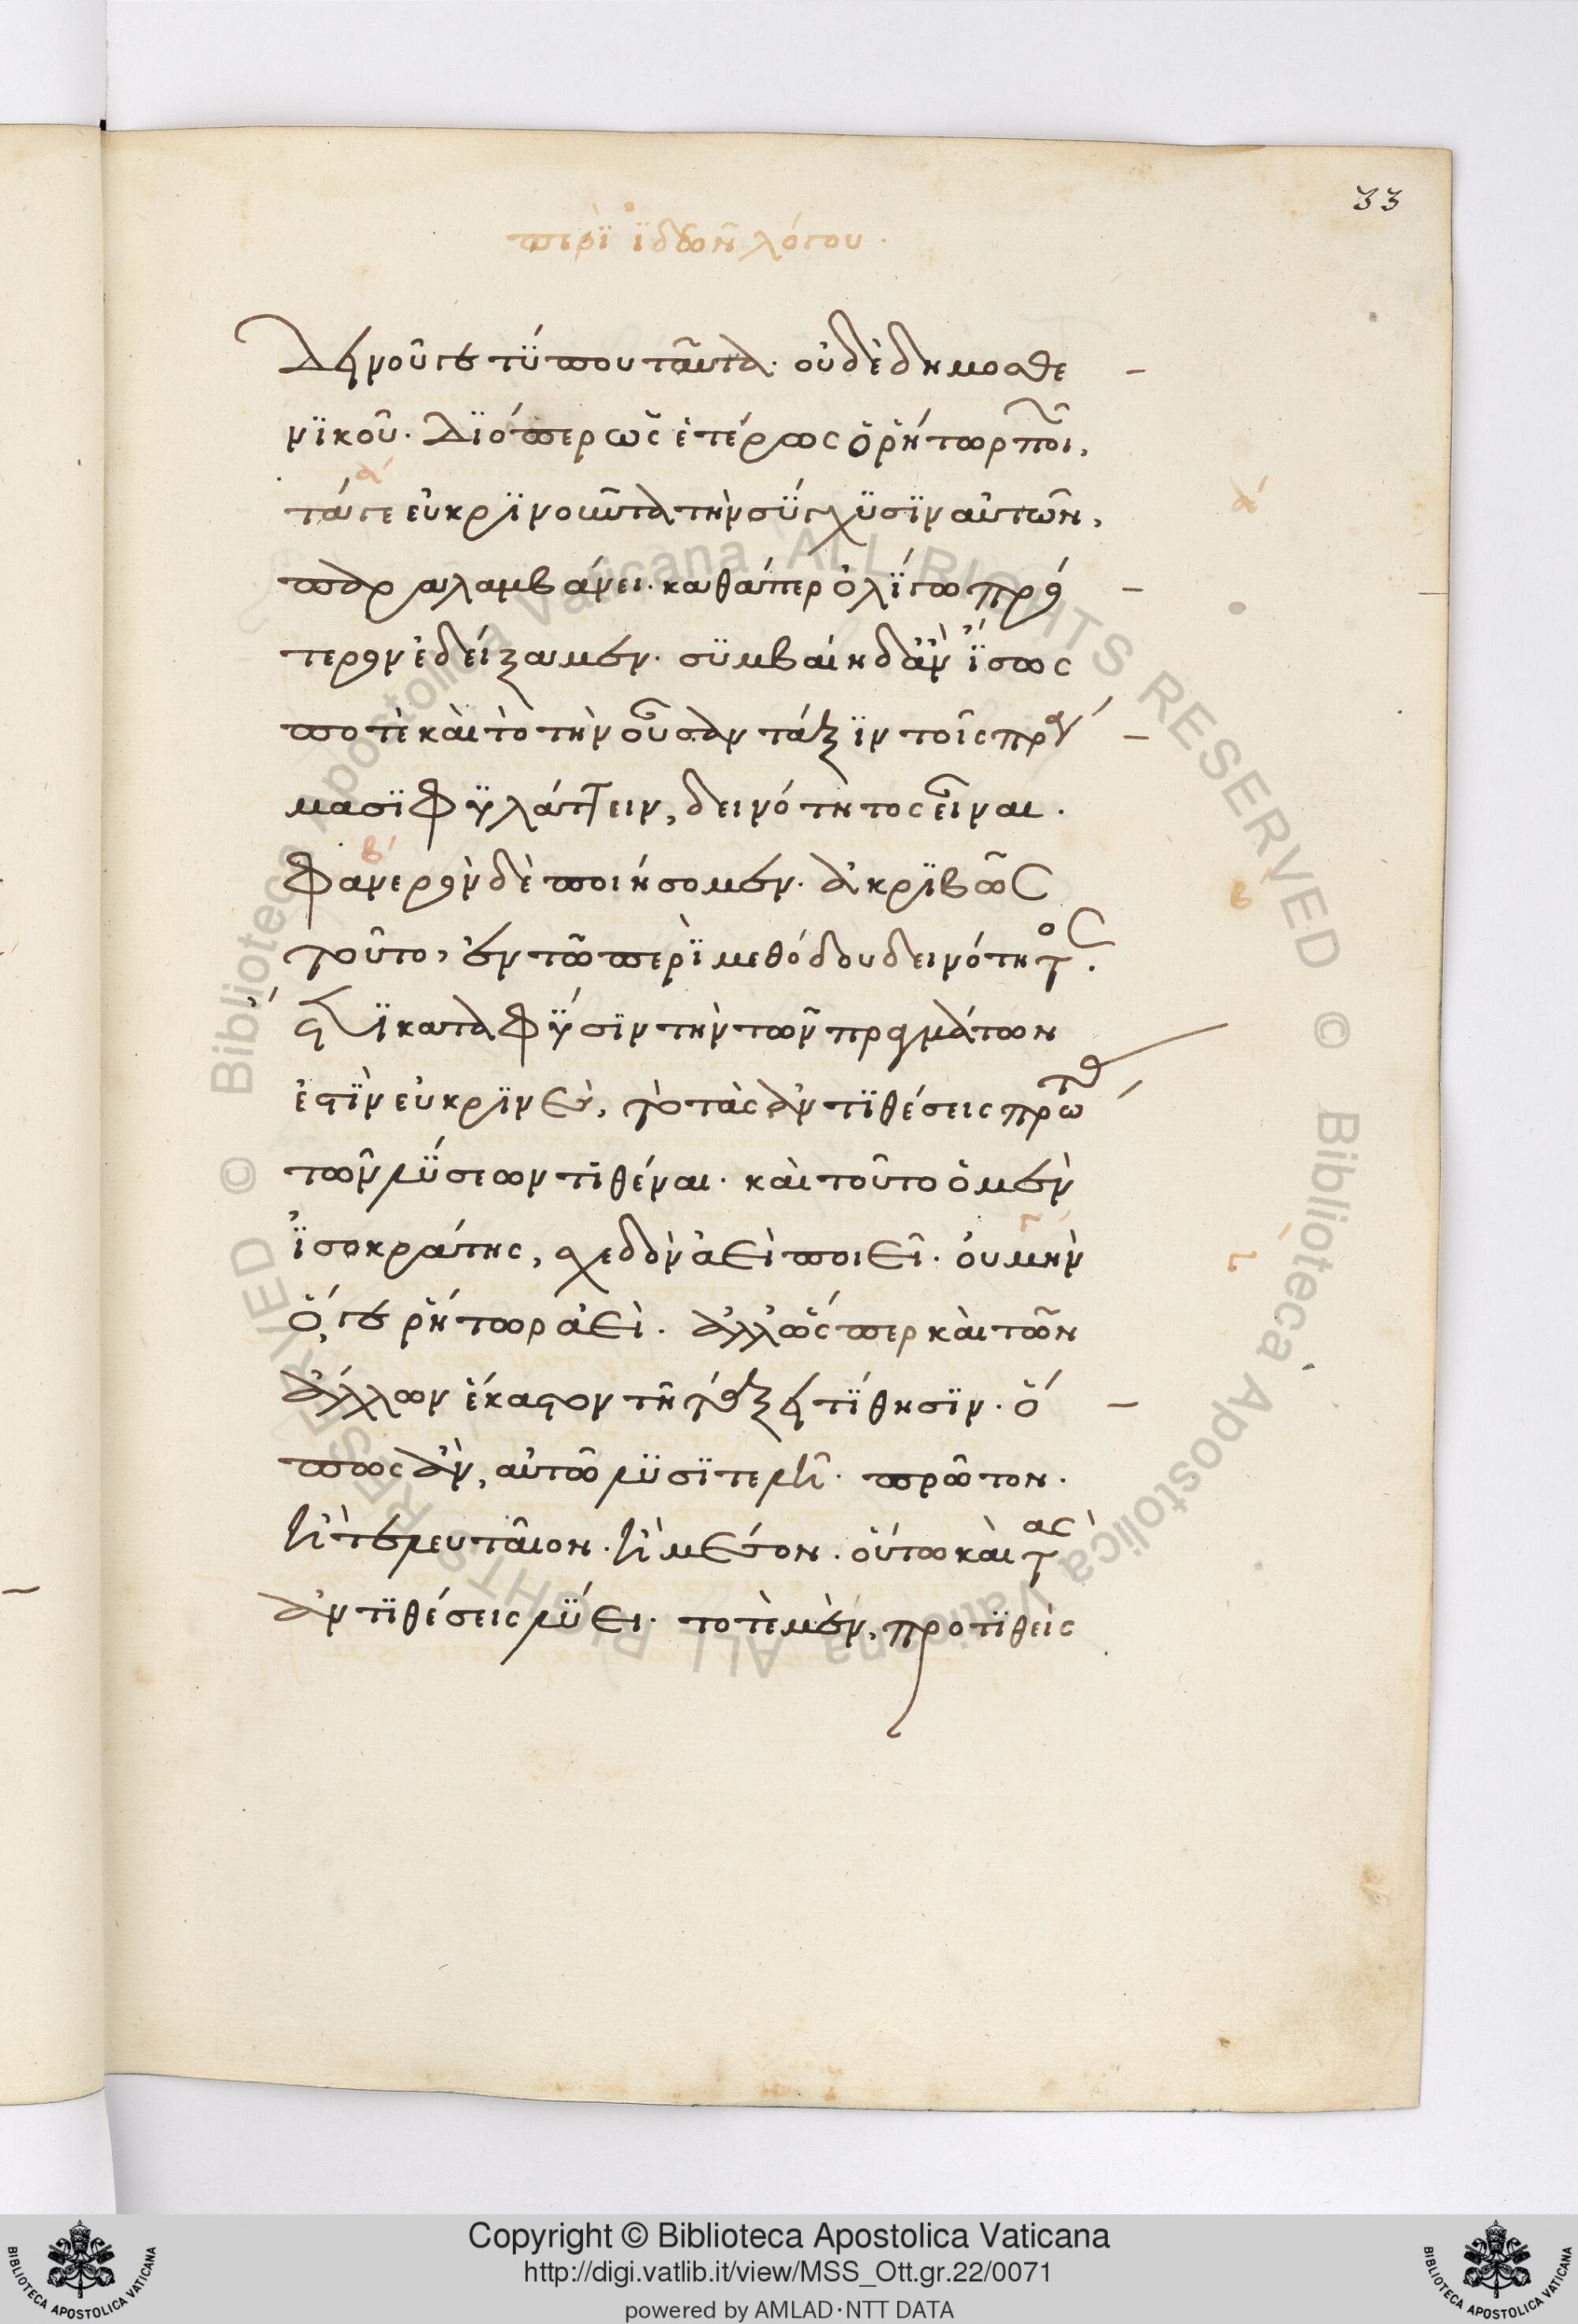 33
περὶ ἰδεῶν λόγου.
Δεινοῦ γε τύπου ταῦτα. οὐδὲ δημοσθε
νικοῦ. Διόπερ ὡς ἑτέρως ὁ ῥήτωρ ποι,
τά γε εὐκρινοῦντα τὴν σύγχυσιν αὐτῶν,
α
α
παραλαμβάνει. καθάπερ ὀλίγω πρό
τερον ἐδείξαμεν. συμβαίη δ' ἂν ἴσως
ποτὲ καὶ τὸ τὴν οὖσαν τάξιν τοῖς πρά
μασι φυλάττειν, δεινότητος εἶναι.
φανερὸν δὲ ποιήσομεν. ἀκριβῶς
β
β
τοῦτο, ἐν τῶ περὶ μεθόδου δεινότητος.
ἔτι κατὰ φύσιν τὴν τῶν πραγμάτων
ἐστὶν εὐκρινὲς, τὸ τὰς ἀντιθέσεις πρὸ
τῶν λύσεων τιθέναι. καὶ τοῦτο ὁ μὲν
ἰσοκράτης, σχεδὸν ἀεὶ ποιεῖ. οὐ μὴν
γ
γ
ὅ, γε ῥήτωρ ἀεὶ. ἀλλ' ὥσπερ καὶ τῶν
ἄλλων ἕκαστον τῆ τάξει τίθησιν. ὅ
πως ἂν, αὐτῶ λυσιτελῆ. πρῶτον.
ἢ τελευταῖον. ἢ μέσον. οὕτω καὶ τὰς
ἀντιθέσεις λύει. τοτὲ μὲν, προτιθεὶς
Copyright © Biblioteca Apostolica Vaticana
http://digi.vatlib.it/view/MSS_Ott.gr.22/0071
powered by AMLAD·NTT DATA
BIBLIOTECA APOSTOLICA VATICANA
BIBLIOTECA APOSTOLICA VATICANA
© Biblioteca Apostolica Vaticana ALL RIGHTS RESERVED
© Biblioteca Apostolica Vaticana ALL RIGHTS RESERVED